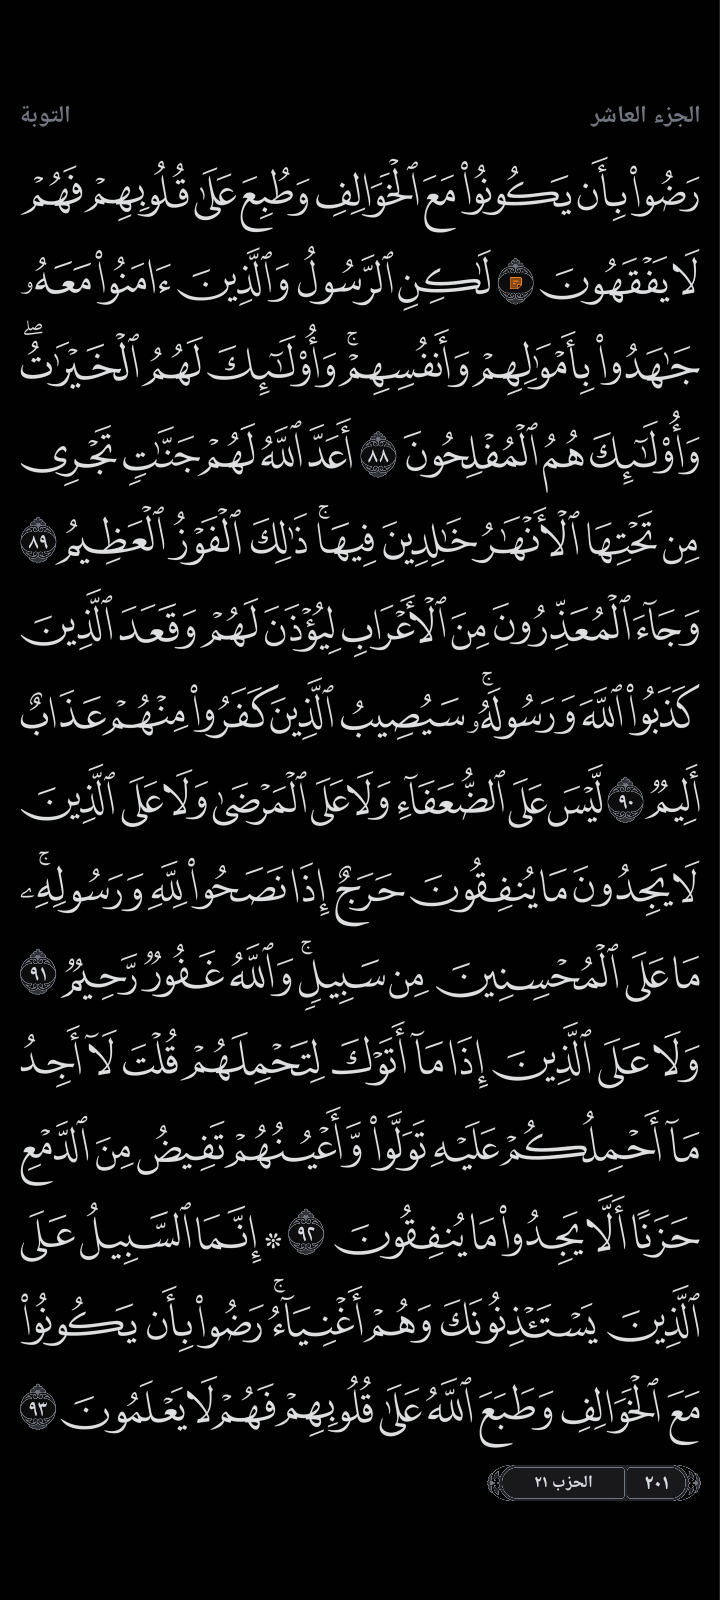 الجزء العاشر التوبة
رَضُوا۟ بِأَن يَكُونُوا۟ مَعَ ٱلْخَوَالِفِ وَطُبِعَ عَلَىٰ قُلُوبِهِمْ فَهُمْ
لَا يَفْقَهُونَ لَٰكِنِ ٱلرَّسُولُ وَٱلَّذِينَ ءَامَنُوا۟ مَعَهُۥ
جَٰهَدُوا۟ بِأَمْوَٰلِهِمْ وَأَنفُسِهِمْۚ وَأُو۟لَٰٓئِكَ لَهُمُ ٱلْخَيْرَٰتُۖ
وَأُو۟لَٰٓئِكَ هُمُ ٱلْمُفْلِحُونَ ٨٨ أَعَدَّ ٱللَّهُ لَهُمْ جَنَّٰتٍ تَجْرِى
مِن تَحْتِهَا ٱلْأَنْهَٰرُ خَٰلِدِينَ فِيهَاۚ ذَٰلِكَ ٱلْفَوْزُ ٱلْعَظِيمُ ٨٩
وَجَآءَ ٱلْمُعَذِّرُونَ مِنَ ٱلْأَعْرَابِ لِيُؤْذَنَ لَهُمْ وَقَعَدَ ٱلَّذِينَ
كَذَبُوا۟ ٱللَّهَ وَرَسُولَهُۥۚ سَيُصِيبُ ٱلَّذِينَ كَفَرُوا۟ مِنْهُمْ عَذَابٌ
أَلِيمٌ ٩٠ لَّيْسَ عَلَى ٱلضُّعَفَآءِ وَلَا عَلَى ٱلْمَرْضَىٰ وَلَا عَلَى ٱلَّذِينَ
لَا يَجِدُونَ مَا يُنفِقُونَ حَرَجٌ إِذَا نَصَحُوا۟ لِلَّهِ وَرَسُولِهِۦۚ
مَا عَلَى ٱلْمُحْسِنِينَ مِن سَبِيلٍۚ وَٱللَّهُ غَفُورٌ رَّحِيمٌ ٩١
وَلَا عَلَى ٱلَّذِينَ إِذَا مَآ أَتَوْكَ لِتَحْمِلَهُمْ قُلْتَ لَآ أَجِدُ
مَآ أَحْمِلُكُمْ عَلَيْهِ تَوَلَّوا۟ وَّأَعْيُنُهُمْ تَفِيضُ مِنَ ٱلدَّمْعِ
حَزَنًا أَلَّا يَجِدُوا۟ مَا يُنفِقُونَ ٩٢ ۞ إِنَّمَا ٱلسَّبِيلُ عَلَى
ٱلَّذِينَ يَسْتَـْٔذِنُونَكَ وَهُمْ أَغْنِيَآءُۚ رَضُوا۟ بِأَن يَكُونُوا۟
مَعَ ٱلْخَوَالِفِ وَطَبَعَ ٱللَّهُ عَلَىٰ قُلُوبِهِمْ فَهُمْ لَا يَعْلَمُونَ ٩٣
٢٠١ الحزب ٢١